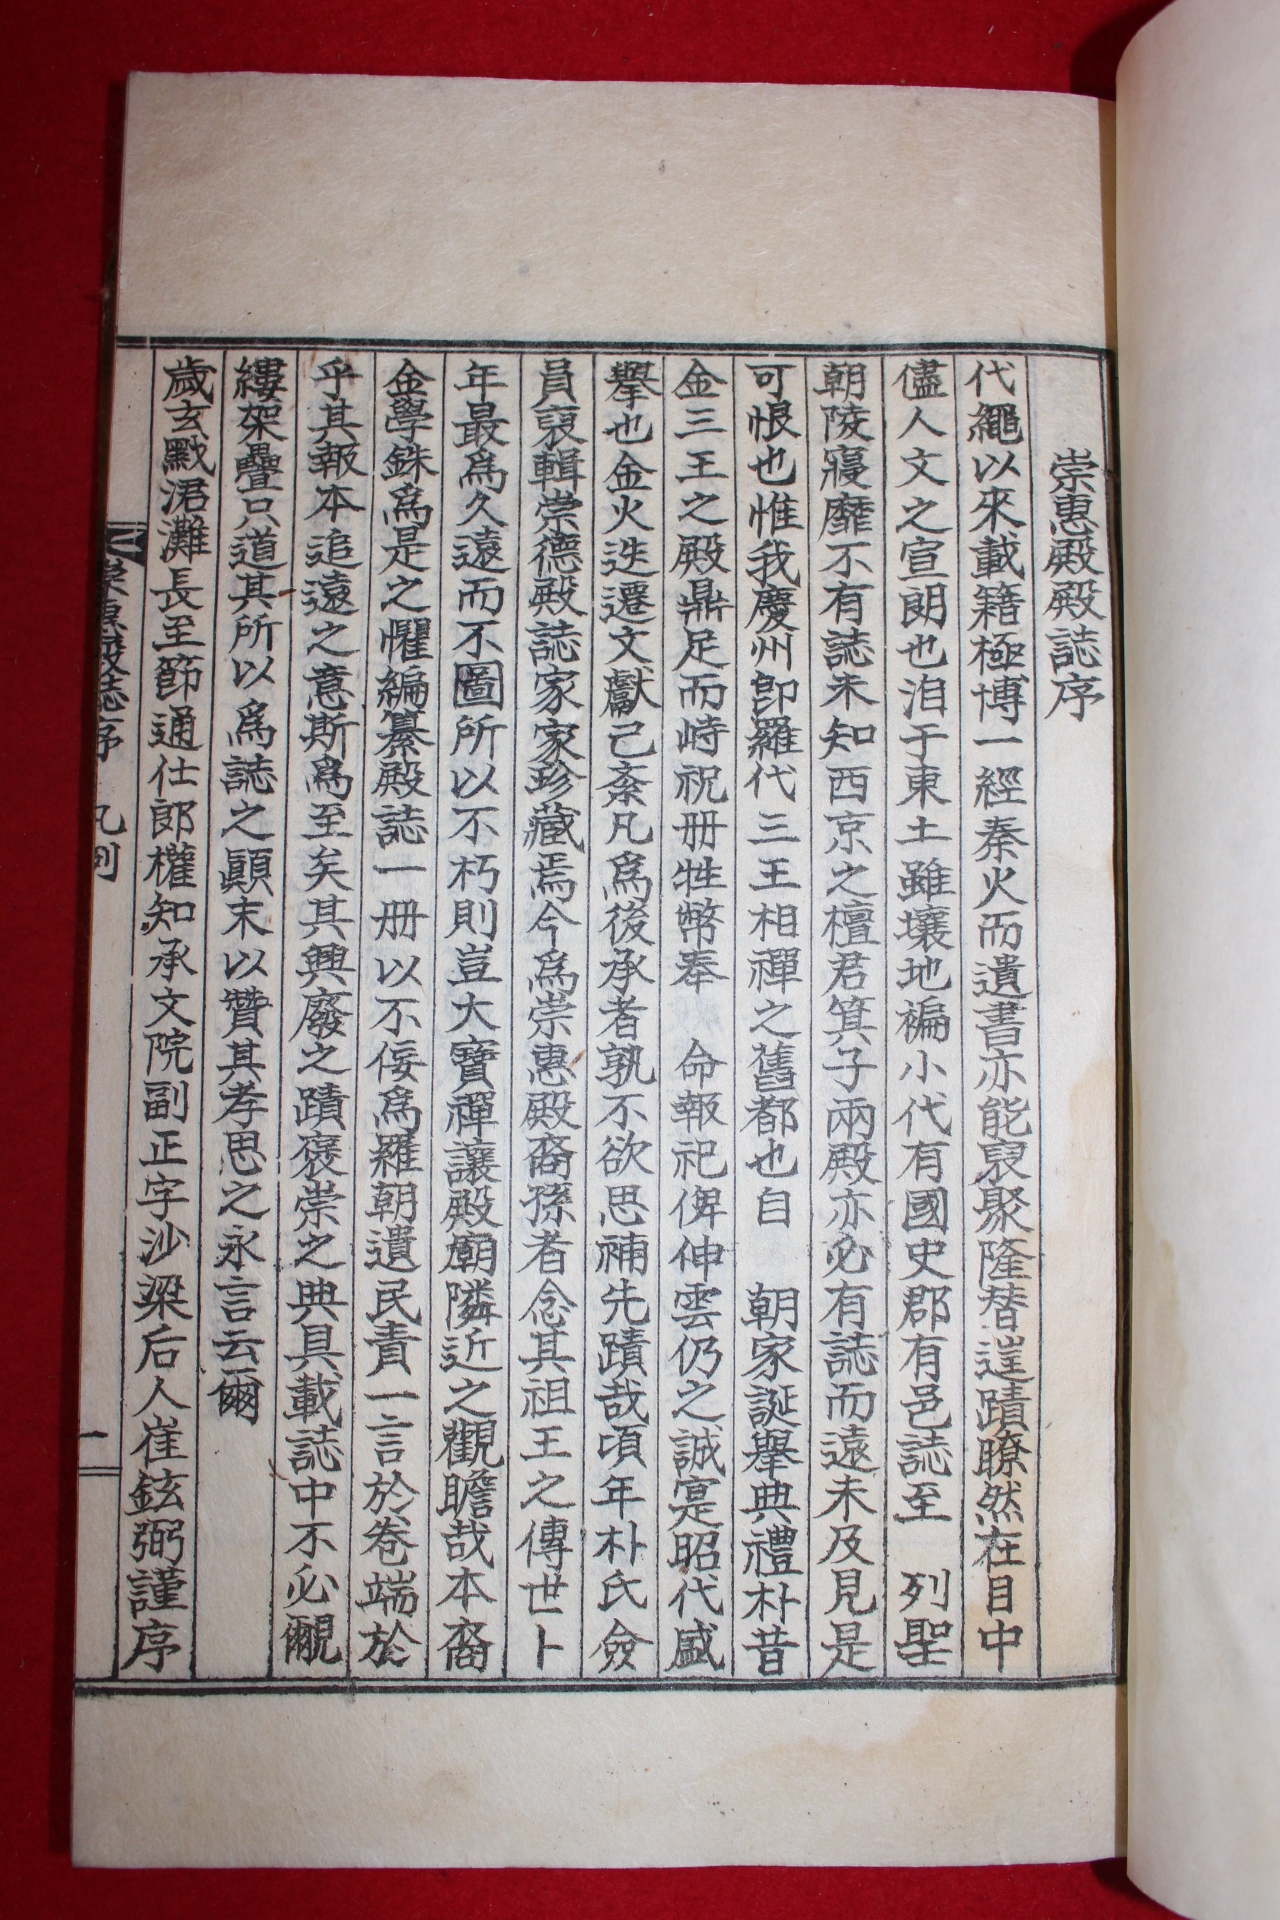 崇惠殿殿誌序
代繩以來載籍極博一經秦火而遺書亦能裒聚隆替逞蹟瞭然在目中
儘人文之宣朗也洎于東土雖壤地褊小代有國史郡有邑誌至 列聖
朝陵寢靡不有誌未知西京之檀君箕子兩殿亦必有誌而遠未及見是
可恨也惟我慶州卽羅代三王相禪之舊都也自 朝家誕擧典禮朴昔
金三王之殿鼎足而峙祝册牲幣奉 命報祀俾伸雲仍之誠寔昭代盛
擧也金火迭遷文獻已紊凡爲後承者孰不欲思補先蹟哉頃年朴氏僉
員裒輯崇德殿誌家家珍藏焉今爲崇惠殿裔孫者念其祖王之傳世卜
年最爲久遠而不圖所以不朽則豈大寶禪讓殿廟隣近之觀瞻哉本裔
金學銖爲是之懼編纂殿誌一册以不佞爲羅朝遺民責一言於卷端於
乎其報本追遠之意斯爲至矣其興廢之蹟褒崇之典具載誌中不必覼
縷架疊只道其所以爲誌之顚末以贊其孝思之永言云爾
歲玄黓涒灘長至節通仕郎權知承文院副正字沙梁后人崔鉉弼謹序
崇惠殿誌序 凡例 一